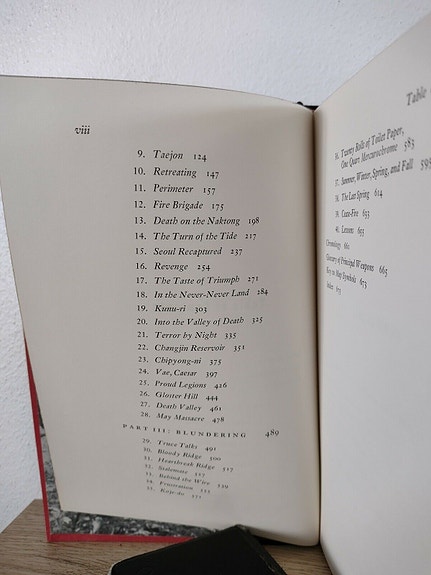 viii
9. Taejon 124
10. Retreating 147
11. Perimeter 157
12. Fire Brigade 175
13. Death on the Naktong 198
14. The Turn of the Tide 217
15. Seoul Recaptured 237
16. Revenge 254
17. The Taste of Triumph 271
18. In the Never-Never Land 284
19. Kunu-ri 303
20. Into the Valley of Death 325
21. Terror by Night 335
22. Changjin Reservoir 351
23. Chipyong-ni 375
24. Vae, Caesar 397
25. Proud Legions 426
26. Gloster Hill 444
27. Death Valley 461
28. May Massacre 478
PART III: BLUNDERING 489
29. Truce Talks 491
30. Bloody Ridge 500
31. Heartbreak Ridge 517
32. Stalemate
33. Behind the Wire 539
34. Frustration
35. Koje-do
Table
36. Twenty Rolls of Toilet Paper,
One Quart Mercurochrome 583
37. Summer, Winter, Spring, and Fall 595
38. The Last Spring 614
39. Cease-Fire 633
40. Lessons 653
Chronology 661
Glossary of Principal Weapons 665
Key to Map Symbols 673
Index